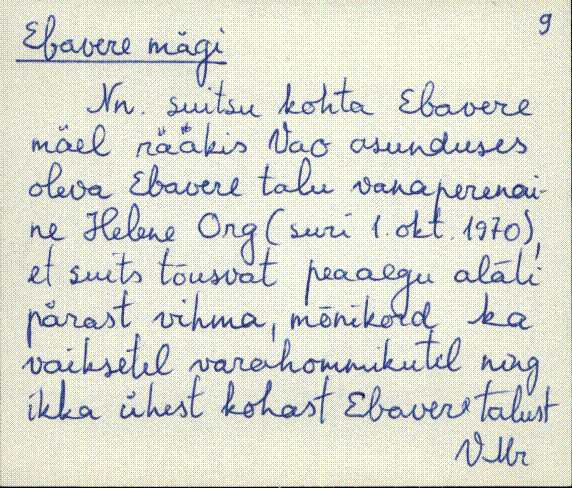 9
Ebavere mägi
Nn. suitsu kohta Ebavere
mäel rääkis Vao asunduses
oleva Ebavere talu vanaperenai-
ne Helene Org (suri 1. okt. 1970),
et suits tõusvat peaaegu alati
pärast vihma, mõnikord ka
vaiksetel varahommikutel ning
ikka ühest kohast Ebavere talust